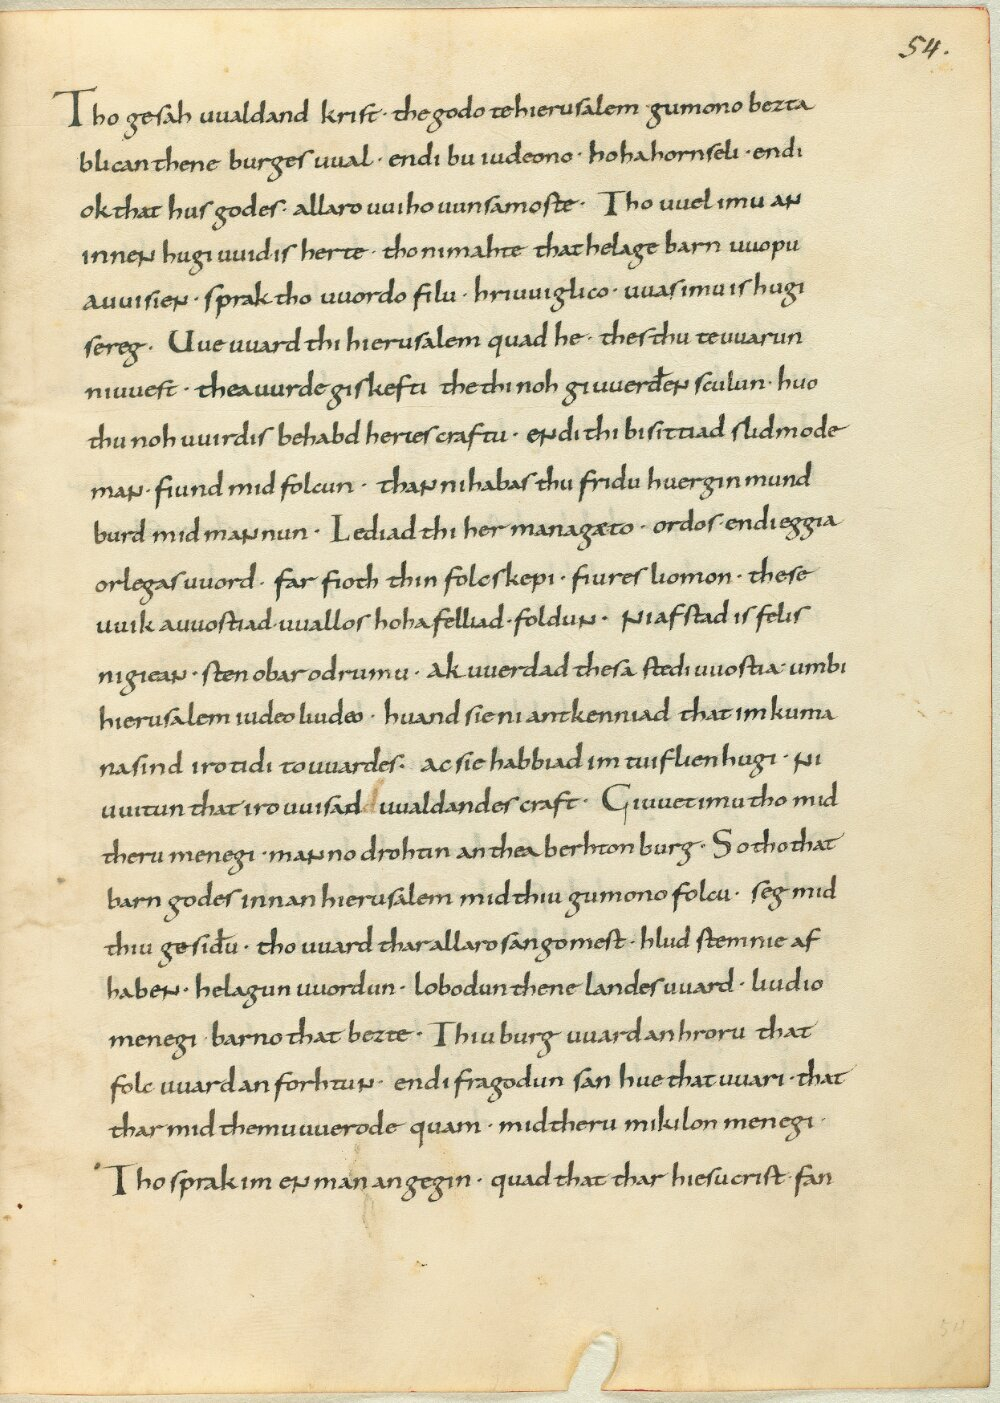 54.
Tho gesah uualdand krist · the godo te hierusalem · gumono bezta
blican thene burges uual · endi bu iudeono · hoha hornseli · endi
ok that hus godes · allaro uuiho uunsamoste · Tho uuel imu an
innen hugi uuid is herte · tho ni mahte that helage barn uuopu
auuisien · sprak tho uuordo filu · hriuuiglico · uuas imu is hugi
sereg · Uue uuard thi hierusalem quad he · thes thu te uuarun
ni uuest · thea uurdegiskefti the thi noh giuuerđen sculun · huo
thu noh uuirdis behabd heries craftu · endi thi bisittiad slidmode
man · fiund mid folcun · than ni habas thu fridu huergin mund
burd mid mannun · Lediad thi her manage to · ordos endi eggia
orlegas uuord · farfioth thin folcskepi · fiures liomon · these
uuik auuostiad uuallos hoha felliad · foldun · Ni afstad is felis
nigiean · sten obar odrumu · ak uuerdad thesa stedi uuostia umbi
hierusalem iudeo liudeo · huand sie ni antkenniad that im kuma
na sind iro tidi touuardes · ac sie habbiad im tuiflien hugi · Ni
uuitun that iro uuisad uualdandes craft · Giuuet imu tho mid
theru menegi · manno drohtin an thea berhton burg · So tho that
barn godes innan hierusalem mid thiu gumono folcu · seg mid
thiu gesiđu · tho uuard thar allaro sango mest · hlud stemnie af
haben · helagun uuordun · lobodun thene landes uuard · liudio
menegi barno that bezte · Thiu burg uuard an hroru that
folc uuard an forhtun · endi fragodun san hue that uuari · that
thar mid themu uuerode quam · mid theru mikilon menegi ·
Tho sprak im en man angegin · quad that thar hiesu crist fan
54